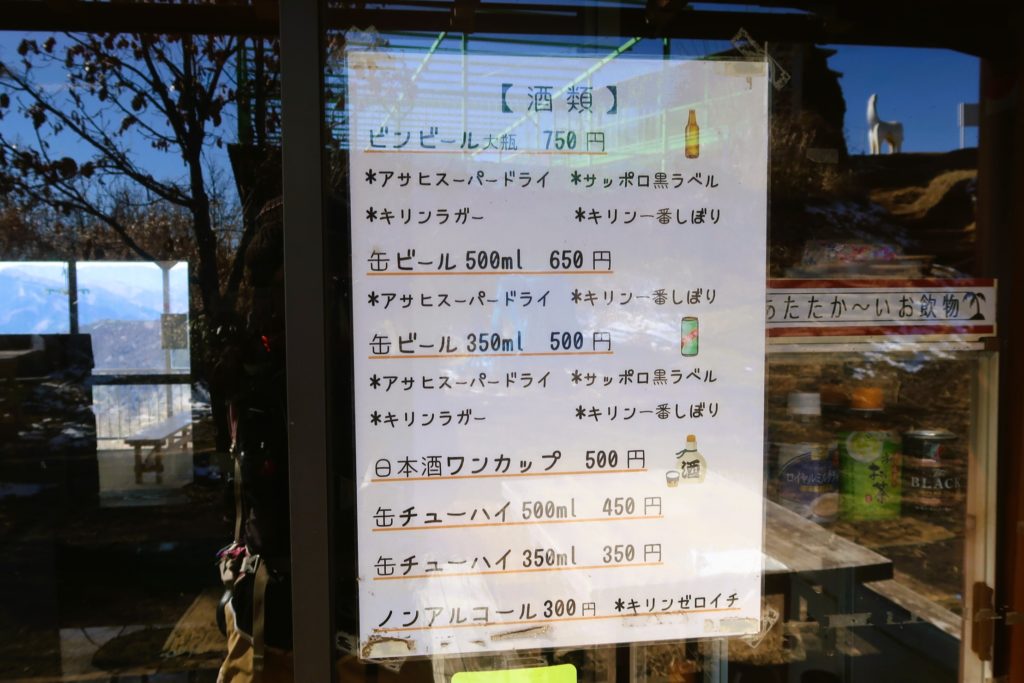 【酒類】
ビンビール大瓶 750円
*アサヒスーパードライ *サッポロ黒ラベル
*キリンラガー *キリン一番しぼり
缶ビール500ml 650円
*アサヒスーパードライ *キリン一番しぼり
缶ビール350ml 500円
*アサヒスーパードライ *サッポロ黒ラベル
*キリンラガー *キリン一番しぼり
日本酒ワンカップ 500円
酒
缶チューハイ500ml 450円
缶チューハイ350ml 350円
ノンアルコール300円 *キリンゼロイチ
あたたか〜いお飲物
ロイヤルミルク
BLACK